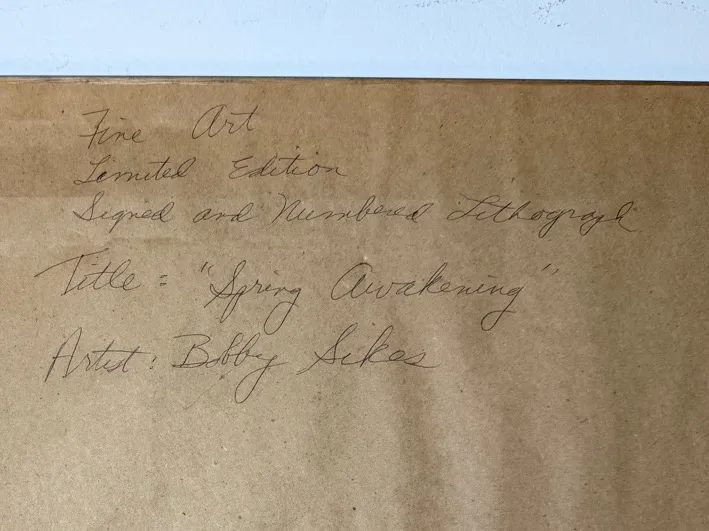 Fine Art
Limited Edition
Signed and Numbered Lithograph
Title: "Spring Awakening"
Artist: Bobby Sikes